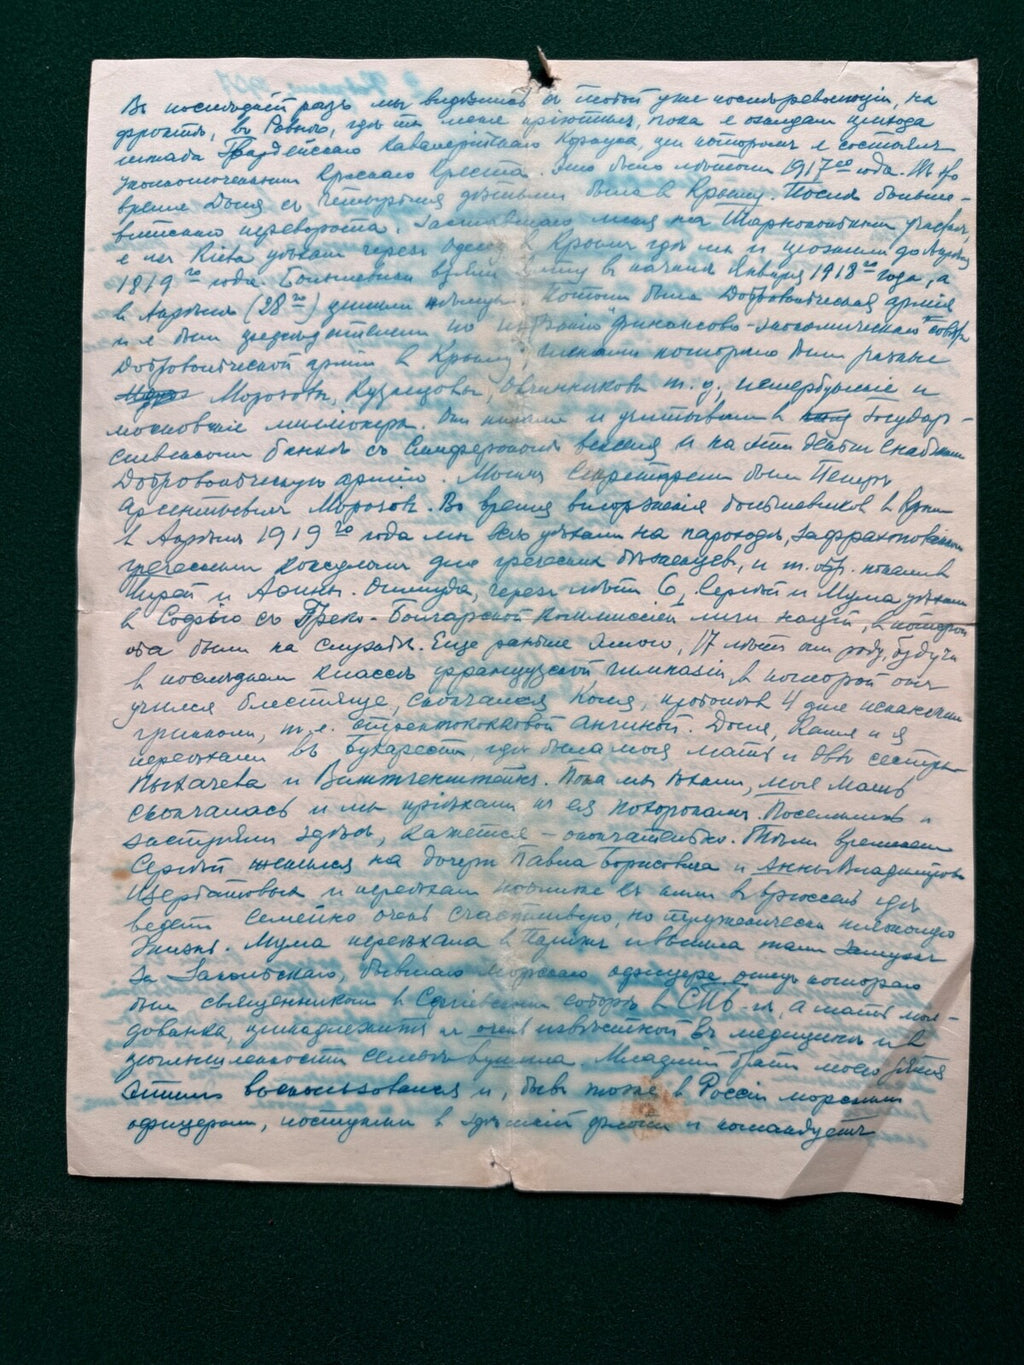 Въ послѣдній разъ мы видѣлись съ тобой уже послѣ революціи, на
фронтѣ, въ Ровно, гдѣ ты меня пріютилъ, пока я ожидалъ прихода
штаба Гвардейскаго Кавалерійскаго Корпуса, при которомъ я состоялъ
уполномоченнымъ Краснаго Креста. Это было лѣтомъ 1917го года. Въ это
время Доля съ четырьмя дѣтьми была въ Крыму. Послѣ больше-
вистскаго переворота, заставшаго меня на
я изъ Кіева уѣхалъ черезъ Одессу въ Крымъ гдѣ мы и прожили до Апрѣля
1819го года. Большевики взяли Ялту въ началѣ Января 1918го года, а
въ Апрѣлѣ (28го) пришли нѣмцы. Потомъ была Добровольческая армія
и я былъ предсѣдателемъ по "финансово-экономическаго совѣта
Добровольческой арміи въ Крыму", членами котораго были разные
Морозовы, Кузнецовы, Овчинниковы т. д., петербургскіе и
московскіе милліонеры. Они писали и учитывали въ Государ-
ственномъ банкѣ въ Симферополѣ векселя и на эти деньги снабжали
Добровольческую армію. Моимъ секретаремъ былъ Петръ
Арсентьевичъ Морозовъ. Во время вторженія большевиковъ въ Крымъ
въ Апрѣлѣ 1919го года мы всѣ уѣхали на пароходѣ, зафрахтованномъ
греческимъ консуломъ для греческихъ бѣженцевъ, и т. обр. попали въ
Пирей и Аѳины. Оттуда, черезъ лѣтъ 6, Сергѣй и Мума уѣхали
въ Софію съ Греко-Болгарской Комиссіей лиги націй, въ которой
оба были на службѣ. Еще раньше этого, 17 лѣтъ отъ роду, будучи
въ послѣднемъ классѣ французской гимназіи, въ которой онъ
учился блестяще, скончался Коля, проболѣвъ 4 дня испанскимъ
гриппомъ, т. е. стрептококковой ангиной. Доля, Катя и я
переѣхали въ Бухарестъ, гдѣ была моя мать и двѣ сестры
Лихачева и Витгенштейнъ. Пока мы ѣхали, моя мать
скончалась и мы пріѣхали къ ея похоронамъ. Поселились и
застряли здѣсь, кажется – окончательно. Тѣмъ временемъ
Сергѣй женился на дочери Павла Борисовича и Анны Владиміровны
Щербатовыхъ и переѣхалъ съ ними въ Брюссель гдѣ
ведетъ семейно очень счастливую, но
жизнь. Мума переѣхала въ Парижъ и вышла тамъ замужъ
за бывшаго морского офицера, отецъ котораго
былъ священникомъ въ Сергіевскомъ соборѣ въ СПБ-гѣ, а мать мол-
дованка, принадлежитъ къ очень извѣстной въ медицинѣ и въ
промышленности семьѣ Младшій братъ моего зятя
этимъ воспользовался и, бывъ тоже въ Россіи морскимъ
офицеромъ, поступилъ въ здѣшній флотъ и командуетъ